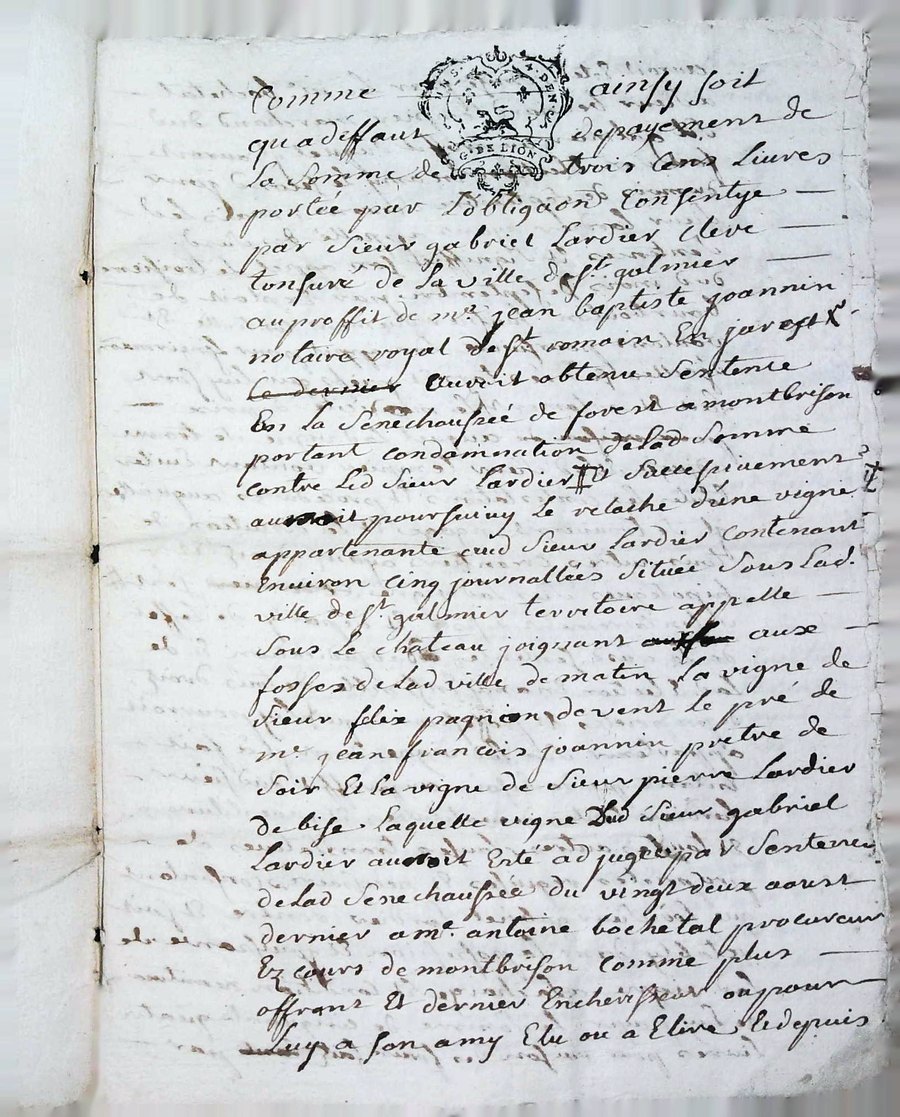 Comme ainsy soit
qua deffaut depayement de
La Somme de trois Cens Livres
portée par Lobligaōn Consentye
par Sieur gabriel Lardier Clerc
tonsuré de La ville de St. galmier
au proffit de mr. jean baptiste joannin
notaire royal de St romain En jarest
Le dernier auroit obtenu Sentence
En La Senechaussée de forest a montbrison
portant condamnation de Lad Somme
contre Led Sieur Lardier Et Successivement
auroit poursuivy Le relache d'une vigne
appartenante aud Sieur Lardier Contenant
Environ Cinq journallées Située Sous Lad.
ville de St. galmier territoire appellé
Sous Le chateau joignant aux
fosses de Lad ville de matin La vigne de
Sieur felix pagnion de vent le pré de
me. jean françois joannin pretre de
Soir Et La vigne de Sieur pierre Lardier
de bise. Laquelle vigne Dud Sieur gabriel
Lardier auroit Esté adjugée par Sentence
de Lad Senechaussée du vingt deux aoust
dernier a me. antoine bochetal procureur
Ez cours de montbrison comme plus
offrant Et dernier Encherisseur ou pour
Luy a son amy Elu ou a Elire Et depuis
G. DE LION